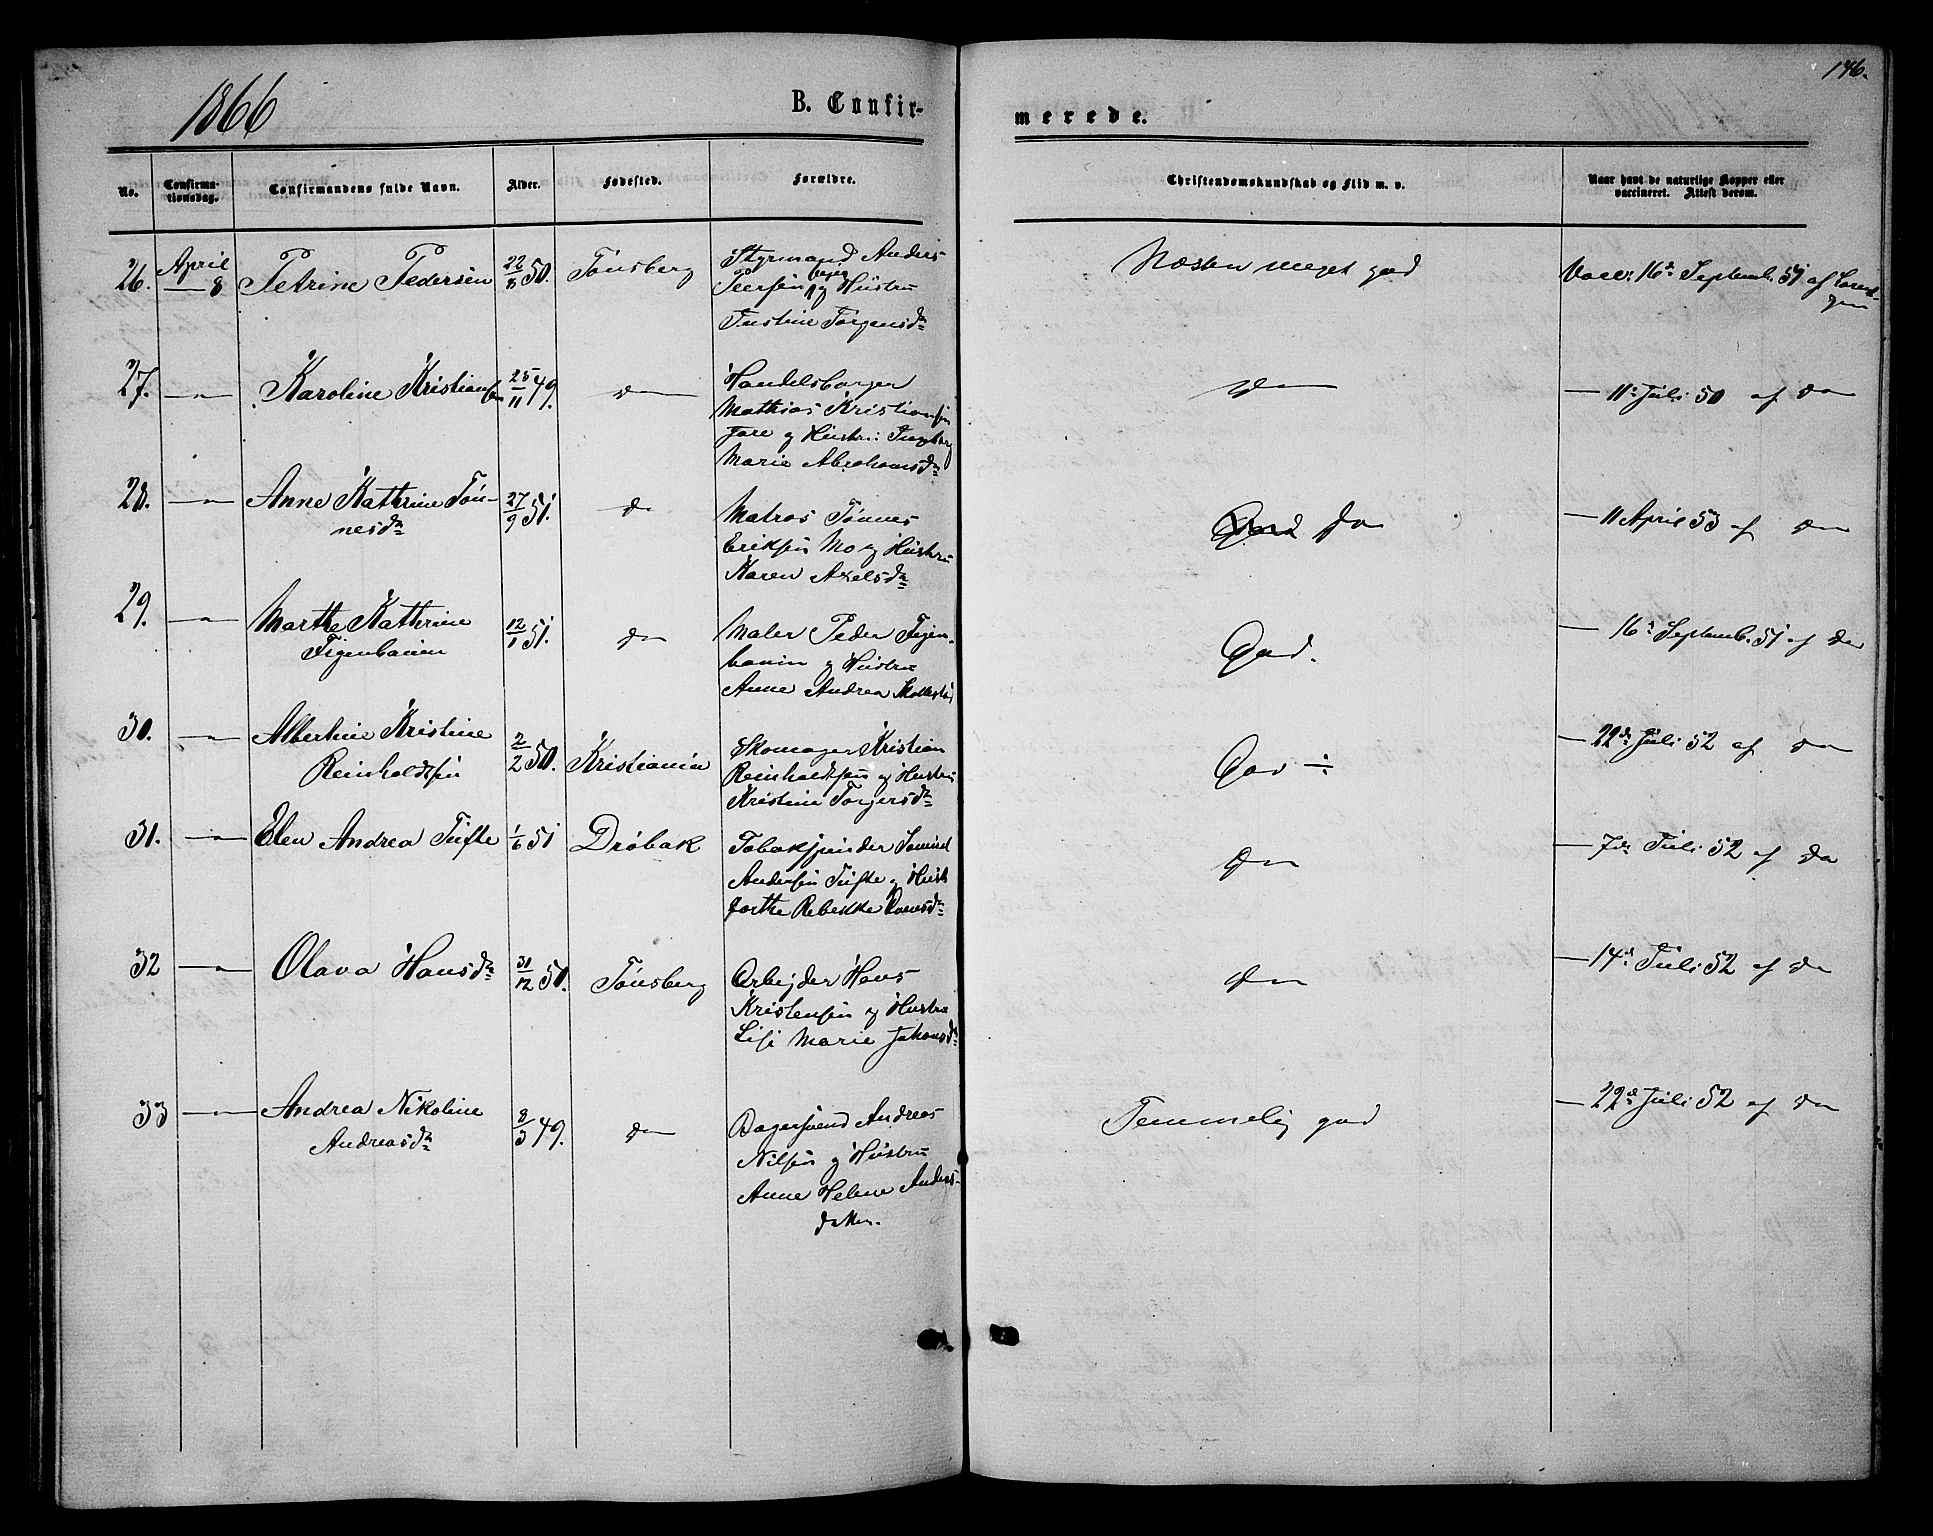 1866
B. Confir-
merede.
146.
No.
Confirma-
tionsdag.
Confirmandens fulde Navn.
Alder.
Fødested.
Forældre.
Christendomskundskab og Flid m. v.
Naar havt de naturlige Kopper eller
vaccineret. Attest derom.
26. April 8 Petrine Pedersen 22/8 50. Tønsberg
Styrmand Anders
Peersen og Hustru
Justine Jørgensd.
Næsten meget god
Vacc. 16d Septemb. 51 af
27. — " — Karoline Kristiansen 25/11 49. do
Handelsborger
Mathias Kristiansen
Fare og Hustru Ingeborg
Marie Abrahamsd.
do
— 11 Juli 50 af do
28. — " — Anne Kathrine Tøn-
nesd. 27/9 51. do
Matros Tønnes
Eriksen Mo og Hustru
Karen Axelsd.
God do
— 11 April 53 af do
29. — " — Marthe Kathrine
Figenbaum 12/1 51. do
Maler Peder Figen-
baum og Hustru
Anne Andrea
God.
— 16d Septemb. 51 af do
30. — " — Albertine Kristine
Reinholdsen 2/2 50. Kristiania
Skomager Kristian
Reinholdsen og Hustru
Kristine Torgersd.
God ÷
— 22d Juli 52 af do
31. — " — Elen Andrea Tufte 1/6 51 Drøbak
Tobakspinder
Andersen Tufte og Hust.
Rebekke
do
— 7d Juli 52 af do
32 — " — Olava Hansd. 31/12 50. Tønsberg
Arbejder Hans
Kristensen og Hustru
Lise Marie Johansd.
do
— 14d Juli 52 af do
33 — " — Andrea Nikoline
Andreasd. 8/3 49. do
Bagersvend Andreas
Nilsen og Hustru
Anne Helene Anders-
datter.
Temmelig god
— 22d Juli 52 af do